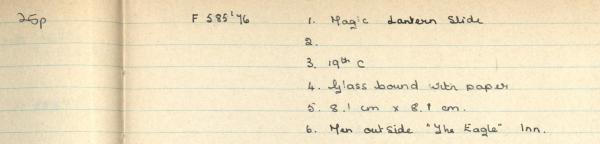 25p F 585'76 1. Magic Lantern Slide
2.
3. 19th C
4. Glass bound with paper
5. 8.1 cm x 8.1 cm.
6. Men outside "The Eagle" Inn.